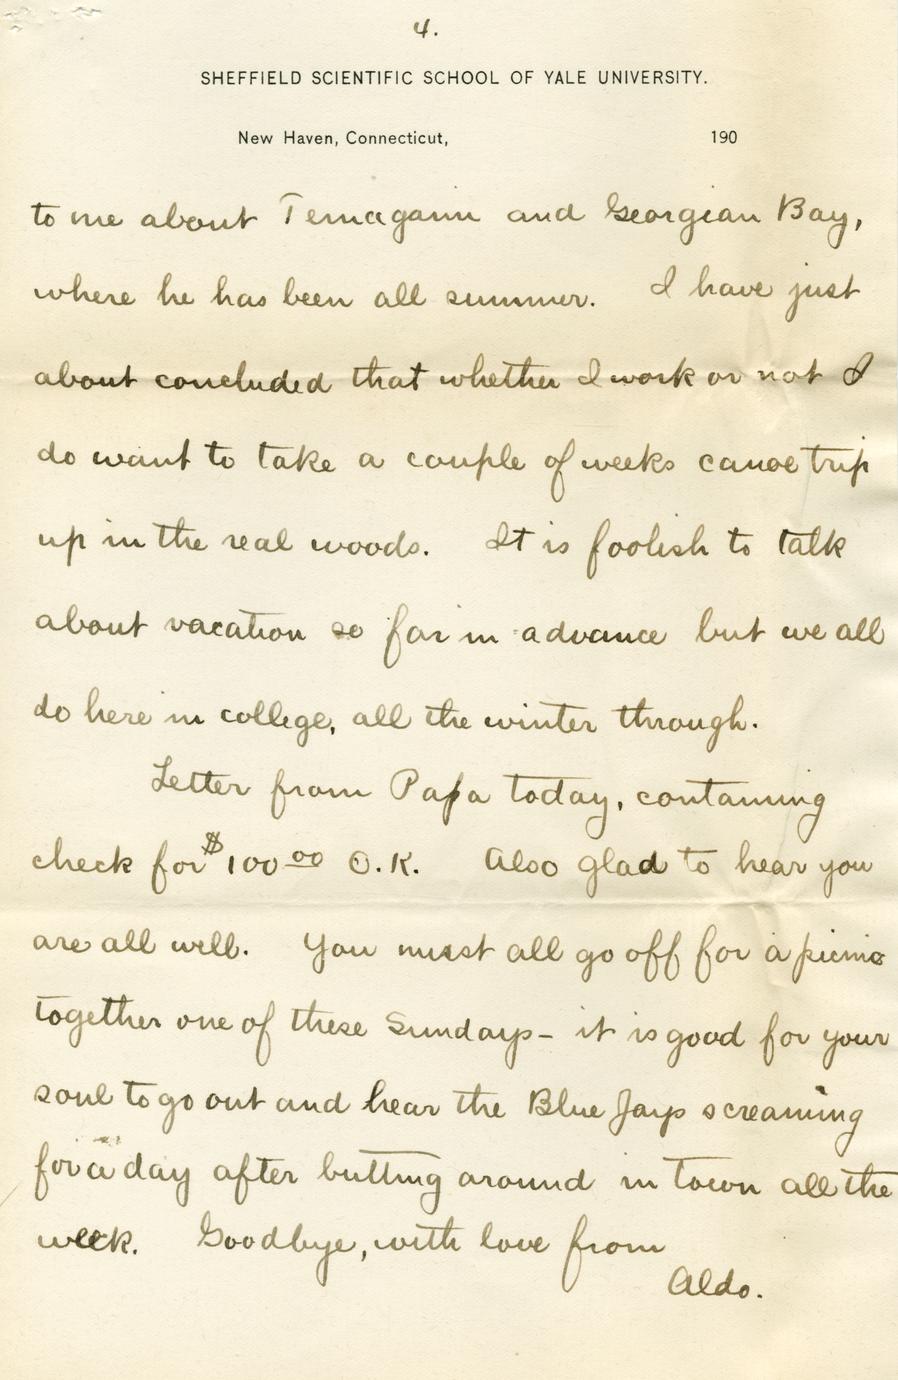 4.
SHEFFIELD SCIENTIFIC SCHOOL OF YALE UNIVERSITY.
New Haven, Connecticut, 190
to me about Temagami and Georgian Bay,
where he has been all summer. I have just
about concluded that whether I work or not I
do want to take a couple of weeks canoe trip
up in the real woods. It is foolish to talk
about vacation so far in advance but we all
do here in college, all the winter through.
Letter from Papa today, containing
check for $100.00 O.K. Also glad to hear you
are all well. You must all go off for a picnic
together one of these Sundays - it is good for your
soul to go out and hear the Blue Jays screaming
for a day after butting around in town all the
week. Goodbye, with love from
Aldo.